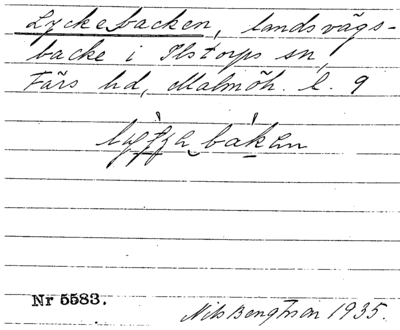 Lyckebacken, landsvägs-
backe i Ilstorps sn,
Färs hd, Malmöh. l. 9
Nr 5583.
Nils Bengtsson 1935.